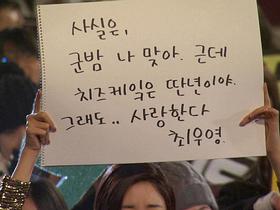 사실은,
군밤 나 맞아. 근데
치즈케익은 딴년이야.
그래도.. 사랑한다
최우영.